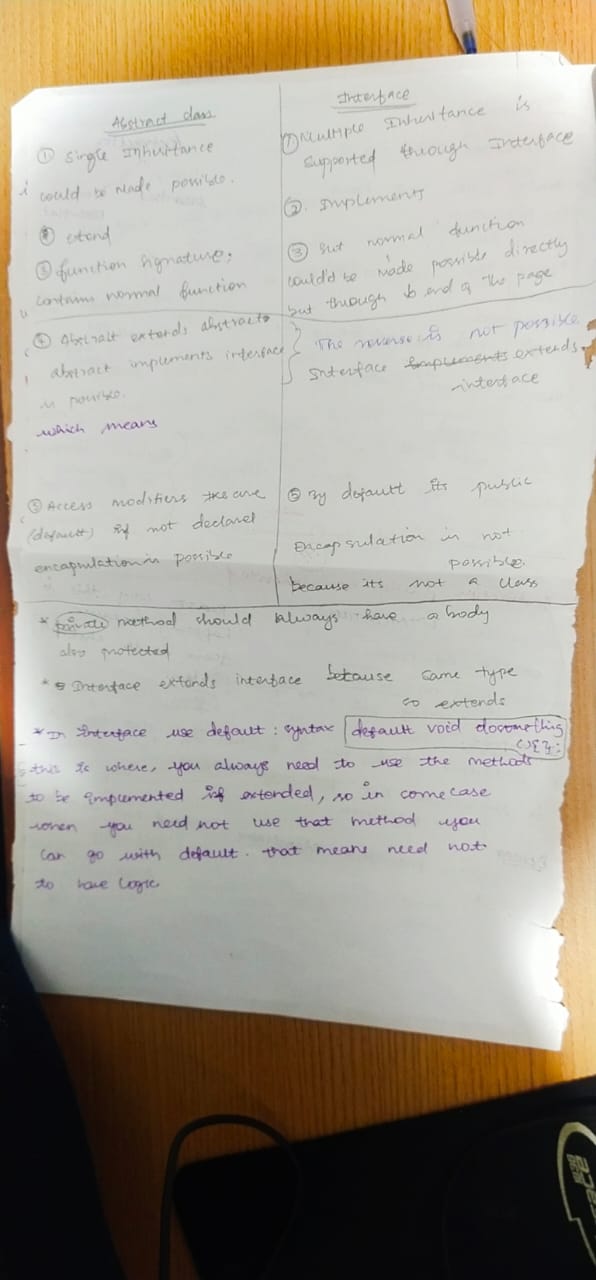 Abstract class
① Single Inheritance
could be Made possible.
② extend
③ function signature;
contains normal function
④ Abstract extends abstract
abstract implements interface
is possible.
which means
⑤ Access modifiers are
(default) if not declared
encapsulation is possible
Interface
① Multiple Inheritance is
supported through Interface
② Implements
③ But normal function
could'd be Made possible directly
but through end of the page
The reverse is not possible
Interface extends
interface
⑤ By default its public
Encapsulation is not
possible.
because its not a class
* private method should always have a body
also protected
* Interface extends interface because same type
so extends
* In Interface use default : syntax default void dosomething
(){};
this is where, you always need to use the methods
to be implemented if extended, so in some case
when you need not use that method you
can go with default. that means need not
to have logic